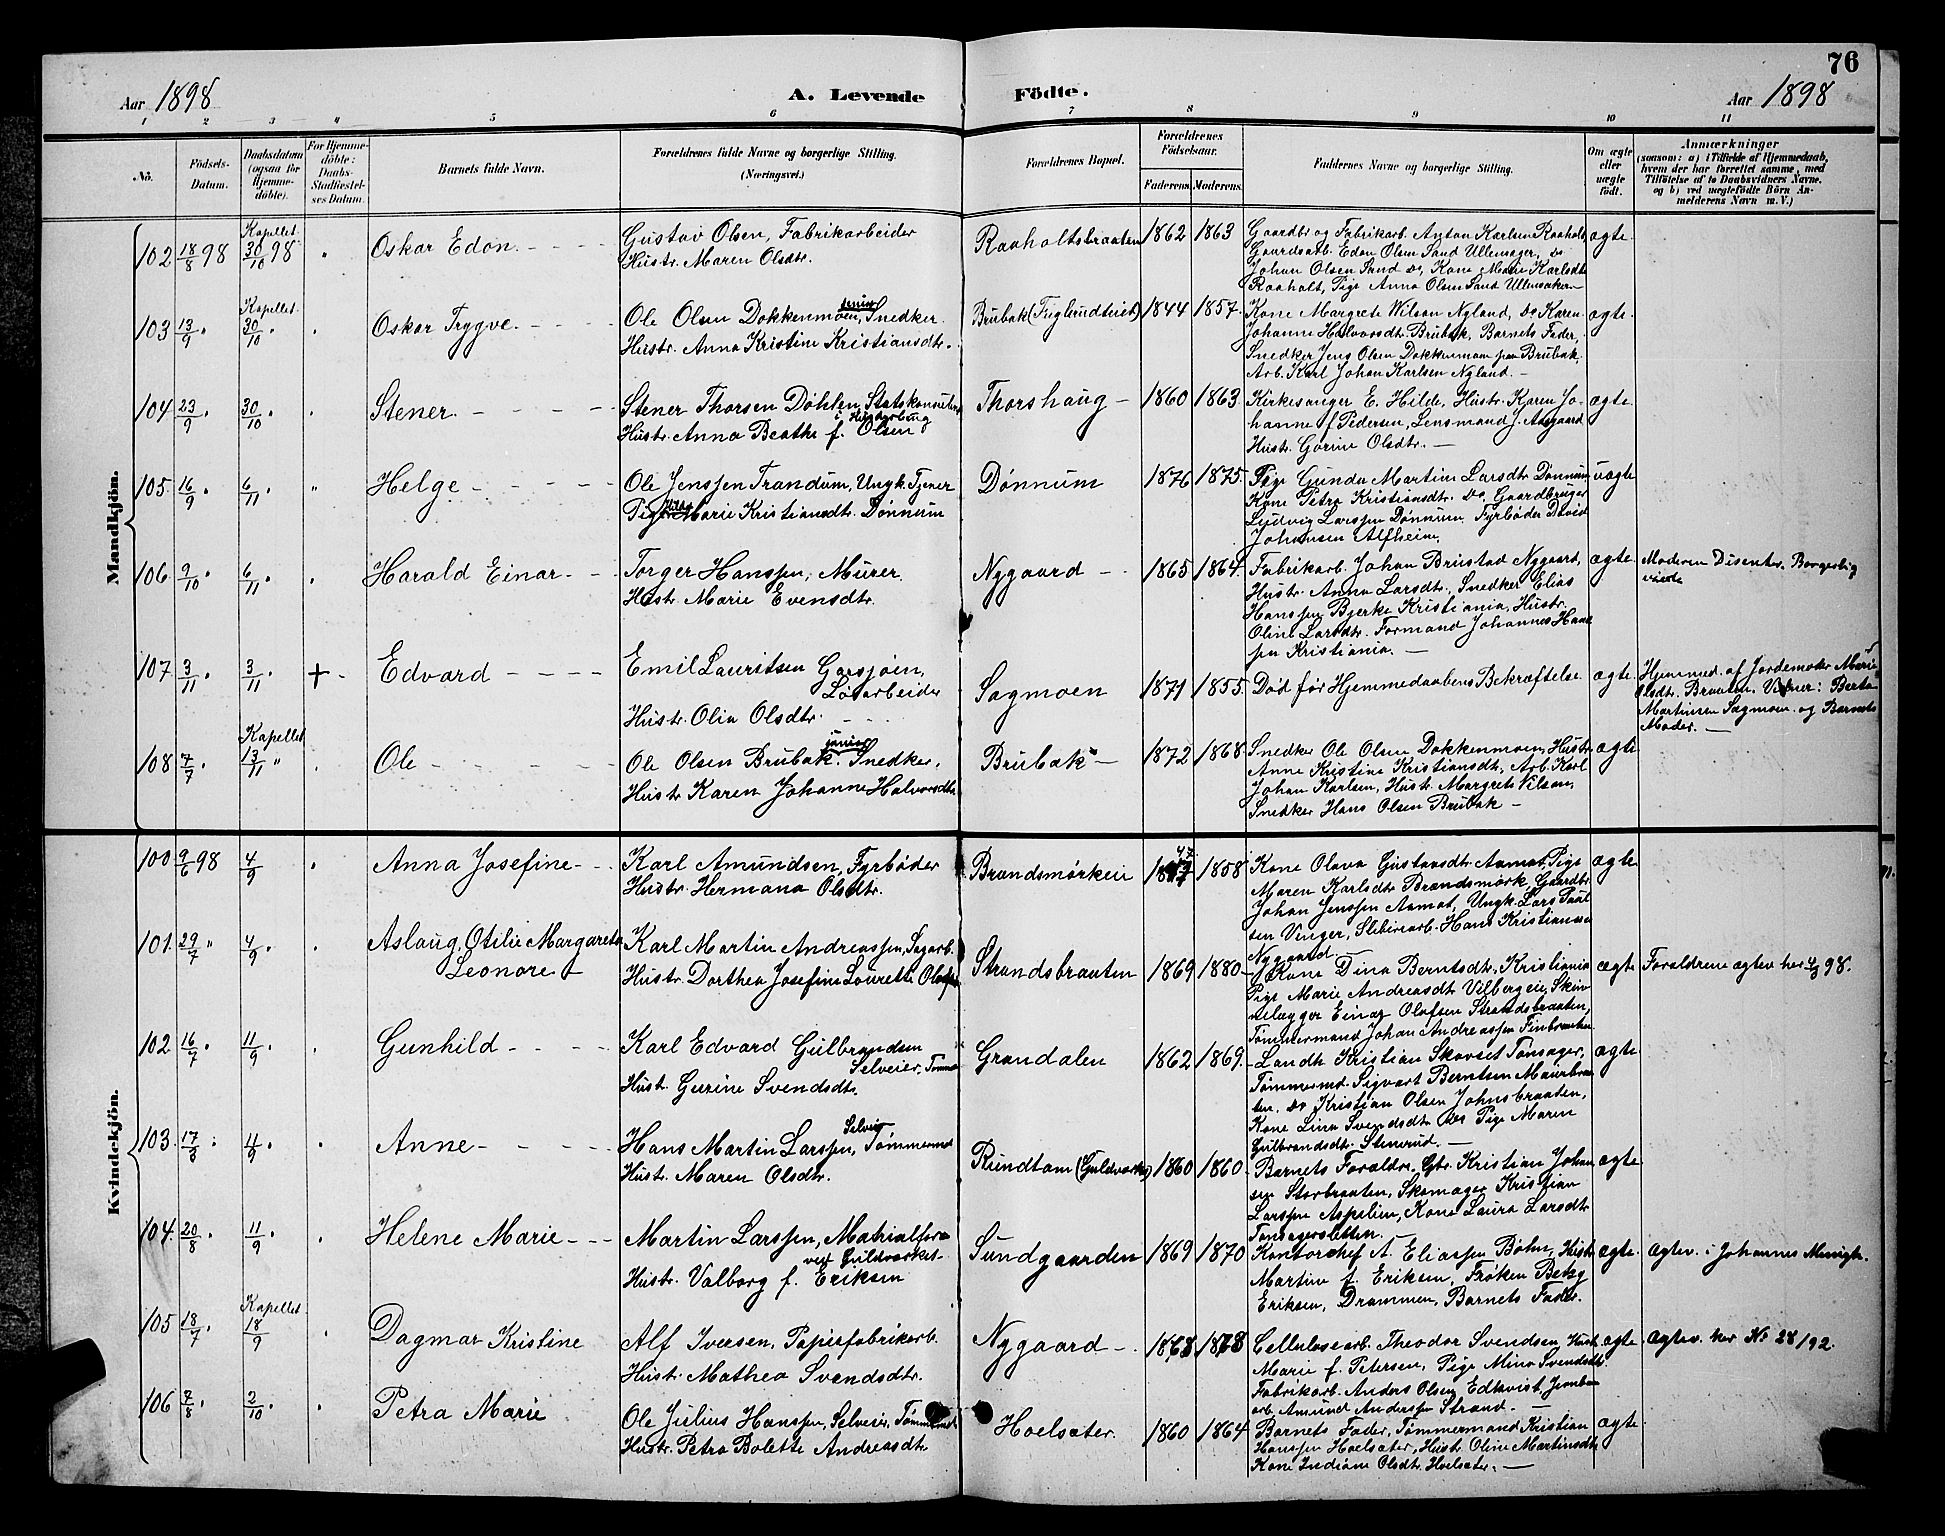 76
Aar 1898
A. Levende Födte.
Aar 1898
1 2 3 4 5 6 7 8 9 10 11
No.
Födsels-
Datum.
Daabsdatum
(ogsaa for
Hjemme-
döbte).
For Hjemme-
döbte:
Daabs-
Stadfæstel-
ses Datum.
Barnets fulde Navn.
Forældrenes fulde Navne og borgerlige Stilling.
(Næringsvei.)
Forældrenes Bopæl.
Forældrenes
Födselsaar.
Faderens. Moderens.
Faddernes Navne og borgerlige Stilling.
Om ægte
eller
uægte
født.
Anmærkninger
(saasom: a) i Tilfælde af Hjemmedaab,
hvem der har forrettet samme, med
Tilföielse af to Daabsvidners Navne,
og b) ved uægtefödte Börn An-
melderens Navn m. V.)
Mandkjön.
102 18/8 98 Kapellet 30/10 98 " Oskar Edon
Gustav Olsen, Fabrikarbeider
Hustr. Maren Olsdtr.
Raaholtsbraaten 1862 1863
Gaardbr og Fabrikarb. Anton Karlsen Raaholt,
Gaardsarb. Edon Olsen Sand Ullensager, Do
Johan Olsen Sand Do, Kone Marie Karlsdtr
Raaholt, Pige Anna Olsen Sand Ullensaker
ægte.
103 13/9 " Kapellet 30/10 " Oskar Trygve.
Ole Olsen Dokkenmoen, senior Snedker.
Hustr. Anna Kristine Kristiansdtr.
Brubak (Fuglerudteiet) 1844 1857.
Kone Margrete Wilson Nyland, Do Karen
Johanne Halvorsdtr. Brubak, Barnets Fader,
Snedker Jens Olsen Dokkenmoen paa Brubak,
Arb. Karl Johan Karlsen Nyland.
ægte.
104 23/9 " 30/10 " Stener
Stener Thorsen Døhlen, Statskonsulent
Hustr. Anna Beathe f. Olsen
Thorshaug 1860 1863
Kirkesanger E. Hilde, Hustr. Karen Jo-
hanne f. Pedersen, Lensmand J. Aasgaard
Hustr. Gorine Olsdtr.
ægte
105. 16/9 " 6/11 " Helge
Ole Jenssen Trandum, Ungk. Tjener
Pige Hilda Marie Kristiansdtr. Dønnum
Dønnum 1876 1875.
Pige Gunda Martine Larsdtr Dønnum
Kone Petra Kristiansdtr. Do, Gaardbruger
Ludvig Larssen Dønnum. Fyrbøder David
Johansen Alfheim.
uægte
106. 9/10 " 6/11 " Harald Einar
Torger Hanssen, Murer.
Hustr. Marie Evensdtr.
Nygaard 1865 1864.
Fabrikarb. Johan Brustad Nygaard,
Hustr. Anna Larsdtr., Snedker Elias
Hanssen Bjerke Kristiania, Hustr.
Oline Larsdtr. Formand Johannes Hans
sen Kristiania.
ægte. Moderen Disenter. Borgerlig
viede
107. 3/11 3/11 + Edvard
Emil Lauritsen Garsjøen,
Løsarbeider
Hustr. Olia Olsdtr.
Sagmoen 1871 1855.
Død før Hjemmedaabens Bekræftelse
ægte. Hjemmed. af Jordemoder Marie
Olsdtr. Braaten. Vidner: Berta
Martinsen Sagmoen og Barnets
Moder.
108. 7/7 " Kapellet 13/11 " Ole
Ole Olsen Brubak junior Snedker.
Hustr Karen Johanne Halvorsdtr
Brubak 1872 1868.
Snedker Ole Olsen Dokkenmoen, Hustr
Anne Kristine Kristiansdtr, Arb. Karl
Johan Karlsen, Hustr. Margrete Vilson,
Snedker Hans Olsen Brubak
ægte
Kvindekjön.
100 9/6 98 4/9 " Anna Josefine
Karl Amundsen, Fyrbøder
Hustr. Hermana Olsdtr.
Brandsmørkeie 1847 1858.
Kone Olava Gustavsdtr Aamot, Pige
Maren Karlsdtr Brandsmørk, Gaardbr
Johan Jenssen Aamot, Ungk. Lars Paul
sen Venger, Sliberiarb. Hans Kristiansen
Nygaard
ægte
101. 29/7 " 4/9 " Aslaug Otilie Margarete
Leonore
Karl Martin Andreassen, Sagarb.
Hustr. Dorthea Josefine Lourette Olafsen
Strandsbraaten 1869 1880
Kone Dina Berntsdtr. Kristiania
Pige Marie Andreasdtr Vilbergeie, Skin
nelægger Einar Olafsen Strandsbraaten,
Tømmermand Johan Andreassen Finbraaten
ægte Forældrene ægtev. her 98.
102 16/7 " 11/9 " Gunhild
Karl Edvard Gulbrandsen
Selveier, Tømmer
Hustr. Gurine Svendsdtr.
Grandalen 1862 1869.
Landh. Kristian Skovset Tønsager,
Tømmermd. Sigvart Berntsen Maurbraa-
ten. Do Kristian Olsen Johnsbraaten,
Kone Lina Svendsdtr Do Pige Maren
Gulbrandsdtr. Stenerud.
ægte
103. 17/8 " 4/9 " Anne
Hans Martin Larssen, Selveier Tømmermd
Hustr. Maren Olsdtr.
Rundtom (Guldværket) 1860 1860.
Barnets Forældre. Gbr. Kristian Johan
sen Storbraaten, Skomager Kristian
Larssen Aspelien, Kone Laura Larsdtr
Tønsagersletten.
ægte.
104. 20/8 " 11/9 " Helene Marie
Martin Larssen, Matrialforv.
ved Guldværket.
Hustr. Valborg f. Eriksen
Sundgaarden 1869 1870
Kontorchef A. Eliassen Bøhn, Hustr
Martine f. Eriksen, Frøken Betzy
Eriksen, Drammen, Barnets Fader.
ægte. Ægtev. i Johannes Menigh.
105 18/7 " Kapellet 18/9 " Dagmar Kristine
Alf Iversen, Papirfabrikarb.
Hustr. Mathea Svendsdtr.
Nygaard 1868 1868
Cellulosearb. Theodor Svendsen, Hustr.
Marie f. Petersen, Pige Mina Svendsdtr.
Fabrikarb. Anders Olsen Edkvist, Jernban
arb. Amund Anderssen Strand.
ægte. Ægtev. her No 28/92.
106 7/8 " 2/10 " Petra Marie
Ole Julius Hanssen, Selveier, Tømmermd
Hustr. Petra Bolette Andreasdtr
Hoelsæter. 1860 1864
Barnets Fader, Tømmermand Kristian
Hanssen Hoelsæter, Hustr Oline Martinsdtr
Kone Indiane Olsdtr. Hoelsæter.
ægte